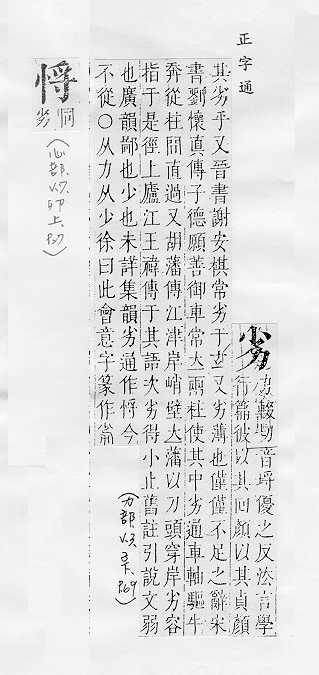 正字通
劣
力輟切音埒優之反法言學
行篇彼以其回顏以其貞顏
其劣乎又晉書謝安棋常劣于玄又劣薄也僅僅不足之辭宋
書劉懷真傳子德願善御車常大兩柱使其中劣通車軸驅牛
奔從柱間直過又胡藩傳江津岸峭壁大藩以刀頭穿岸劣容
指于是徑上廬江王褘傳于其語次劣得小止舊註引說文弱
也廣韻鄙也少也未詳集韻劣通作㤊今
不從○从力从少徐曰此會意字篆作
(力部,以
㤊
同
劣
(心部,以